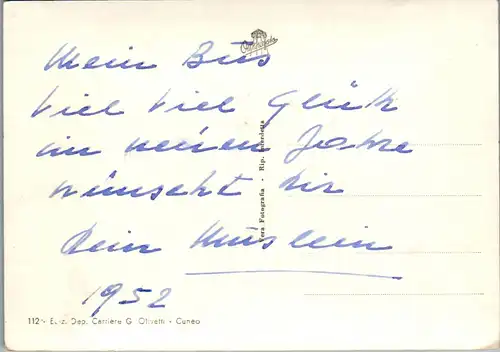 Mein Bus
viel viel Glück
im neuen Jahre
wünscht Dir
Dein Muslein
1952
Vera Fotografia - Rip. Interdetta
112 - Ediz. Dep. Cartiere G. Olivetti - Cuneo